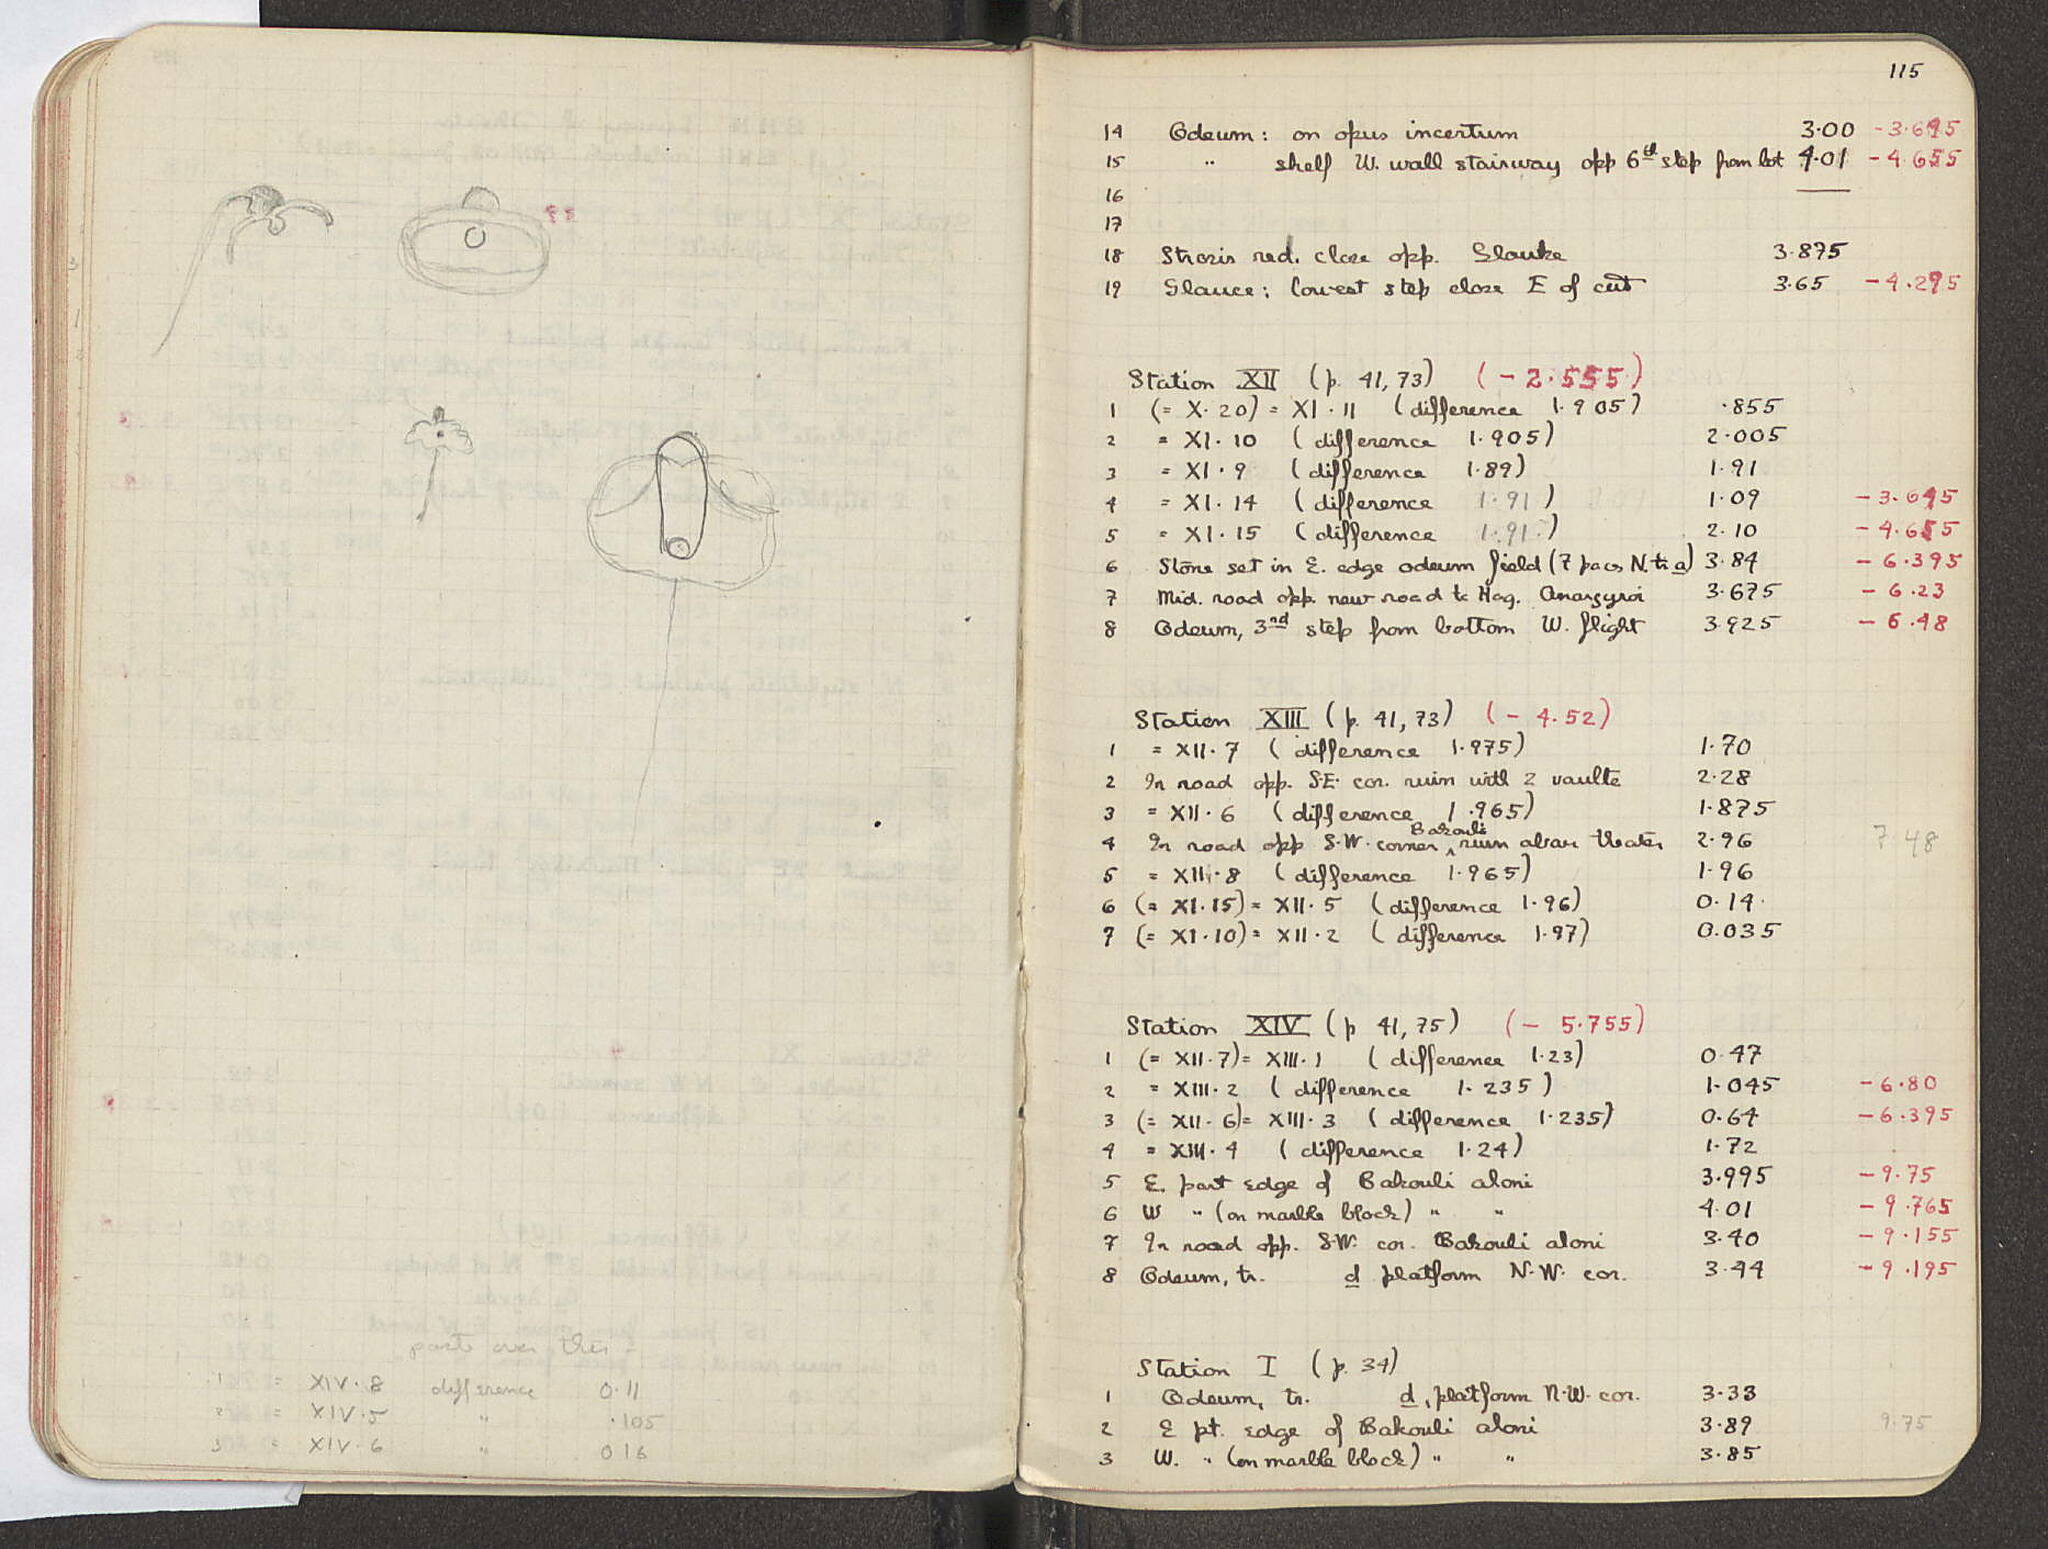 paste over this
1 = XIV·8 difference 0·11
2 = XIV·5 " ·105
3 = XIV·6 " 0 16
115
14 Odeum: on opus incertum 3·00 -3·695
15 " shelf W. wall stairway opp 6th step from bot 4·01 -4·655
16
17
18 Strosis red. close opp. Glauke 3·875
19 Glauce: lowest step close E of cut 3·65 -4·295
Station XII (p. 41, 73) (-2·555)
1 (= X·20) = XI·11 (difference 1·905) ·855
2 = XI·10 (difference 1·905) 2·005
3 = XI·9 (difference 1·89) 1·91
4 = XI·14 (difference 1·91) 1·09 -3·645
5 = XI·15 (difference 1·91) 2·10 -4·655
6 Stone set in E. edge odeum field (7 paces N. tr. a) 3·84 -6·395
7 Mid. road opp. new road to Hag. Anargyroi 3·675 -6·23
8 Odeum, 3rd step from bottom W. flight 3·925 -6·48
Station XIII (p. 41, 73) (-4·52)
1 = XII·7 (difference 1·975) 1·70
2 In road opp. S.E. cor. ruin with 2 vaults 2·28
3 = XII·6 (difference 1·965) 1·875
4 In road opp S.W. corner Bakouli ruin above theater 2·96 7 48
5 = XII·8 (difference 1·965) 1·96
6 (= XI·15) = XII·5 (difference 1·96) 0·14
7 (= XI·10) = XII·2 (difference 1·97) 0·035
Station XIV (p 41, 75) (-5·755)
1 (= XII·7) = XIII·1 (difference 1·23) 0·47
2 = XIII·2 (difference 1·235) 1·045 -6·80
3 (= XII·6) = XIII·3 (difference 1·235) 0·64 -6·395
4 = XIII·4 (difference 1·24) 1·72
5 E. part edge of Bakouli aloni 3·995 -9·75
6 W " (on marble block) " " 4·01 -9·765
7 In road opp. S.W. cor. Bakouli aloni 3·40 -9·155
8 Odeum, tr. d platform N.W. cor. 3·44 -9·195
Station I (p. 34)
1 Odeum, tr. d, platform N.W. cor. 3·33
2 E pt. edge of Bakouli aloni 3·89 9·75
3 W. " (on marble block) " " 3·85